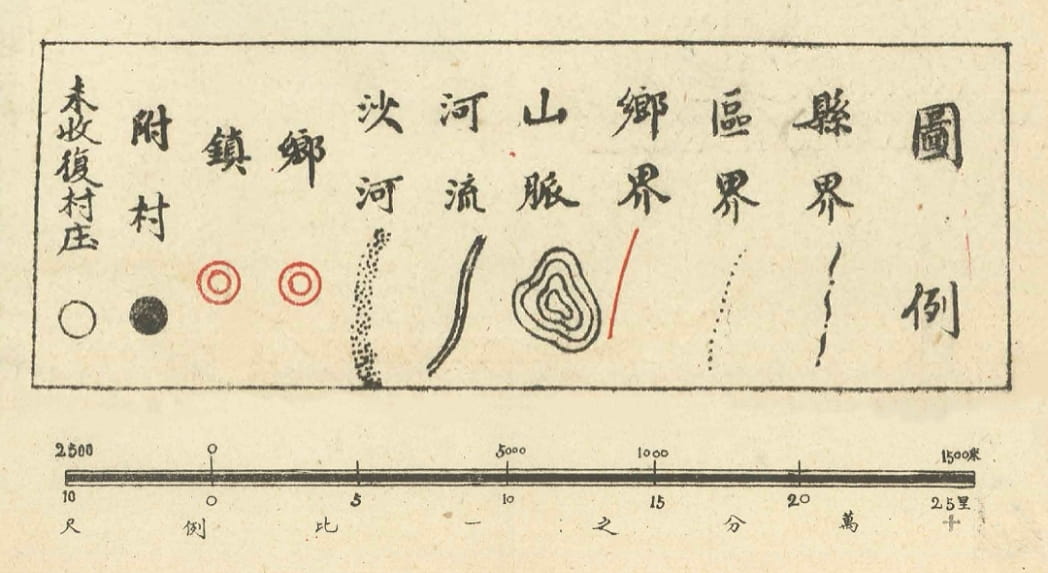 圖例
縣界
區界
鄉界
山脈
河流
沙河
鄉
鎮
附村
未收復村庄
2500 0 5000 1000 1500米
10 0 5 10 15 20 25里
十萬分之一比例尺